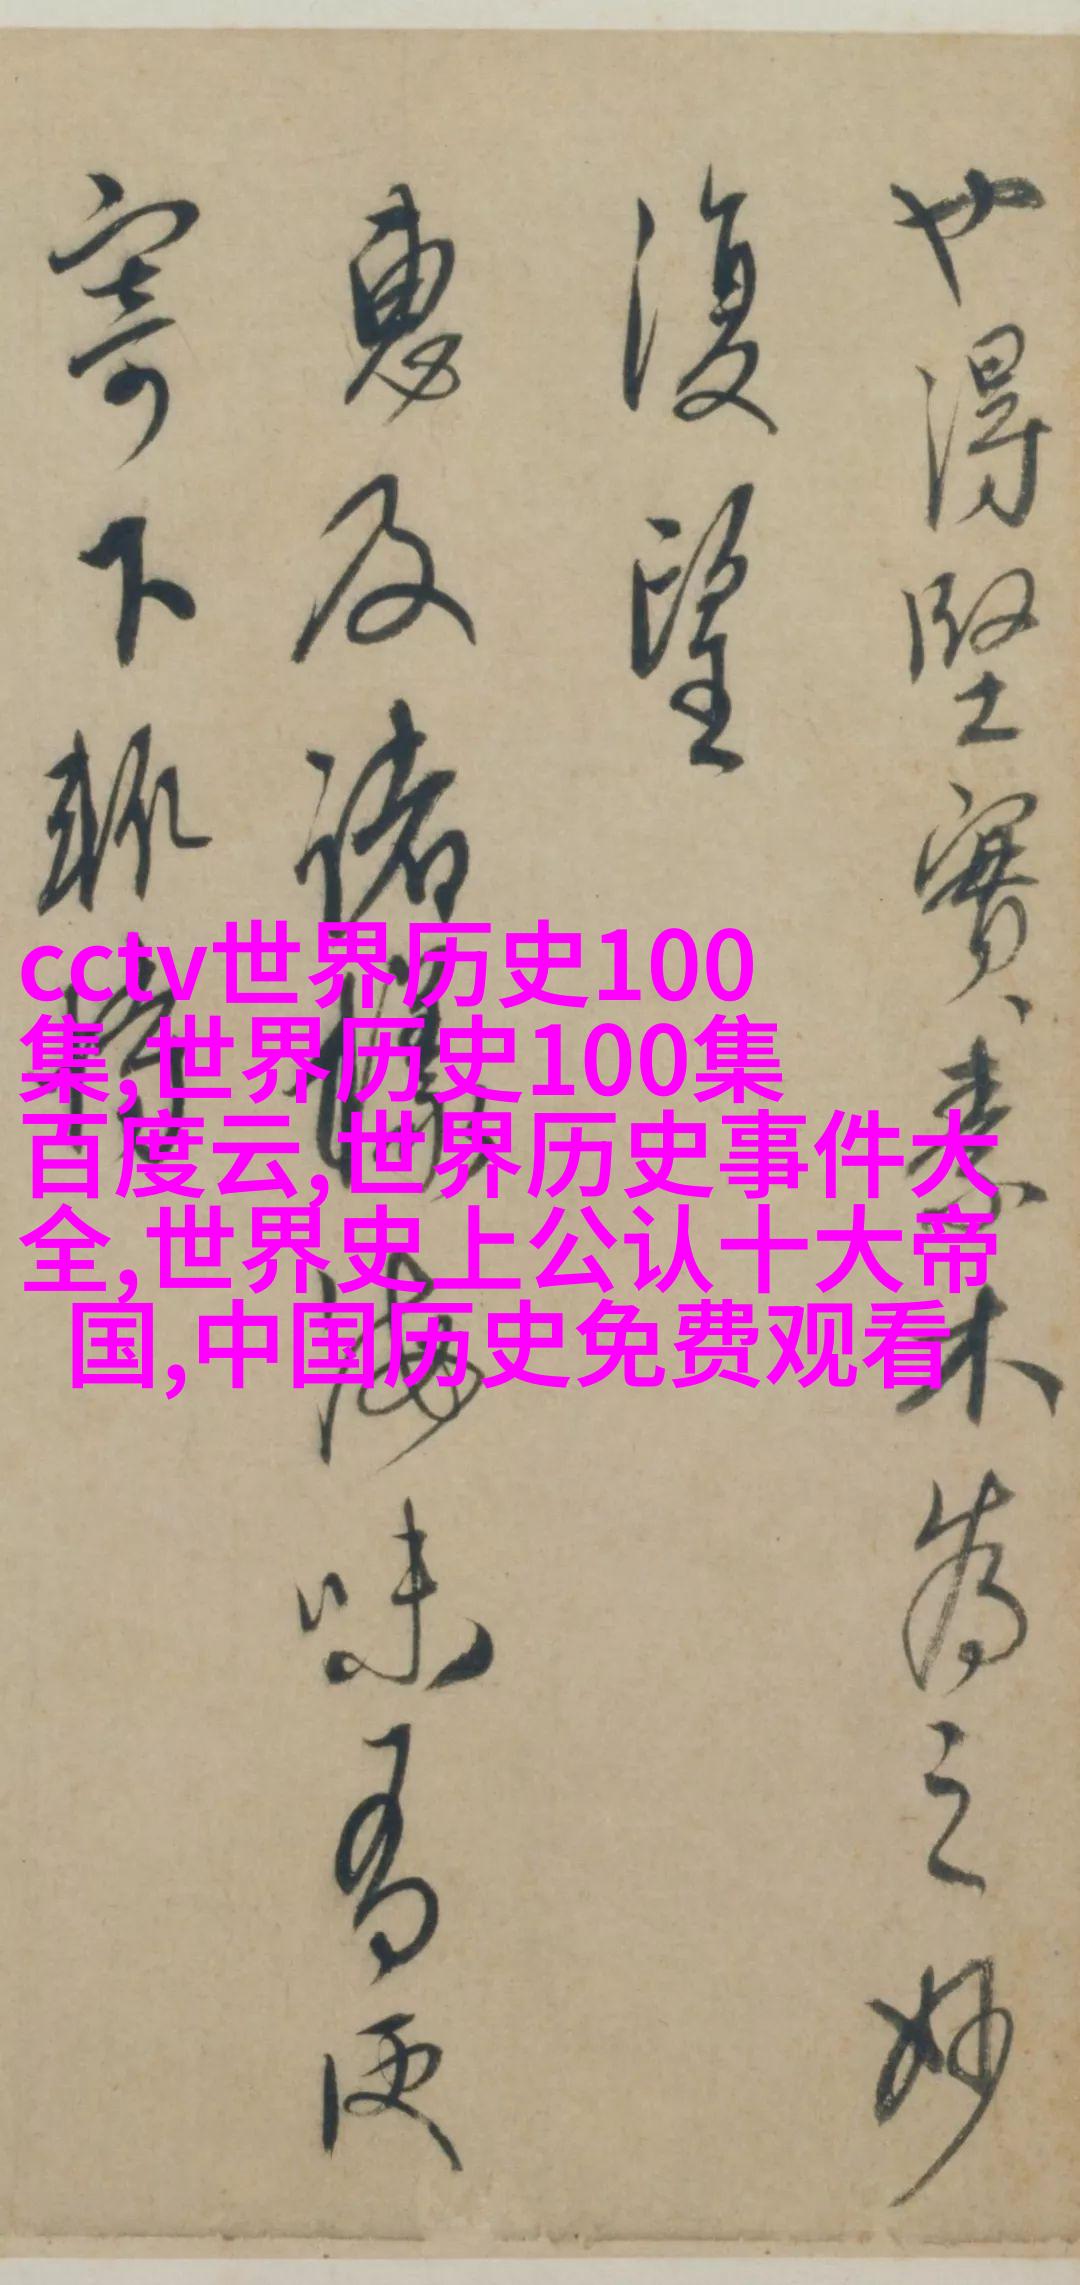 得堅實素木為之妙
復望
惠及諸海味有便
寄下輒
cctv世界历史100
集,世界历史100集
百度云,世界历史事件大
全,世界史上公认十大帝
国,中国历史免费观看